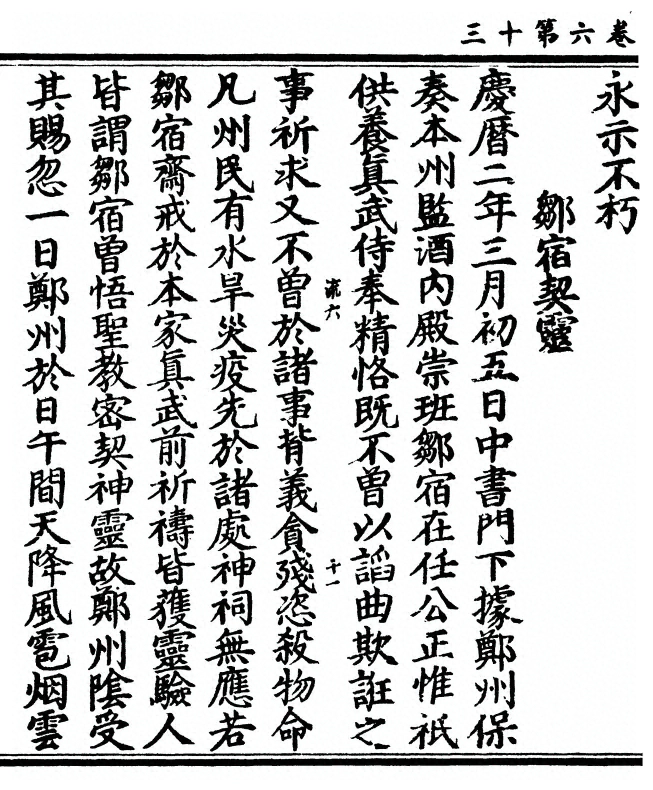 三十第六卷
永示不朽
鄒宿契靈
慶曆二年三月初五日中書門下據鄭州保
奏本州監酒內殿崇班鄒宿在任公正惟祇
供養眞武侍奉精恪既不曾以謟曲欺誑之
流六
十一
事祈求又不曾於諸事背義貪殘恣殺物命
凡州民有水旱災疫先於諸處神祠無應若
鄒宿齋戒於本家眞武前祈禱皆獲靈驗人
皆謂鄒宿曾悟聖教密契神靈故鄭州陰受
其賜忽一日鄭州於日午間天降風雹烟雲